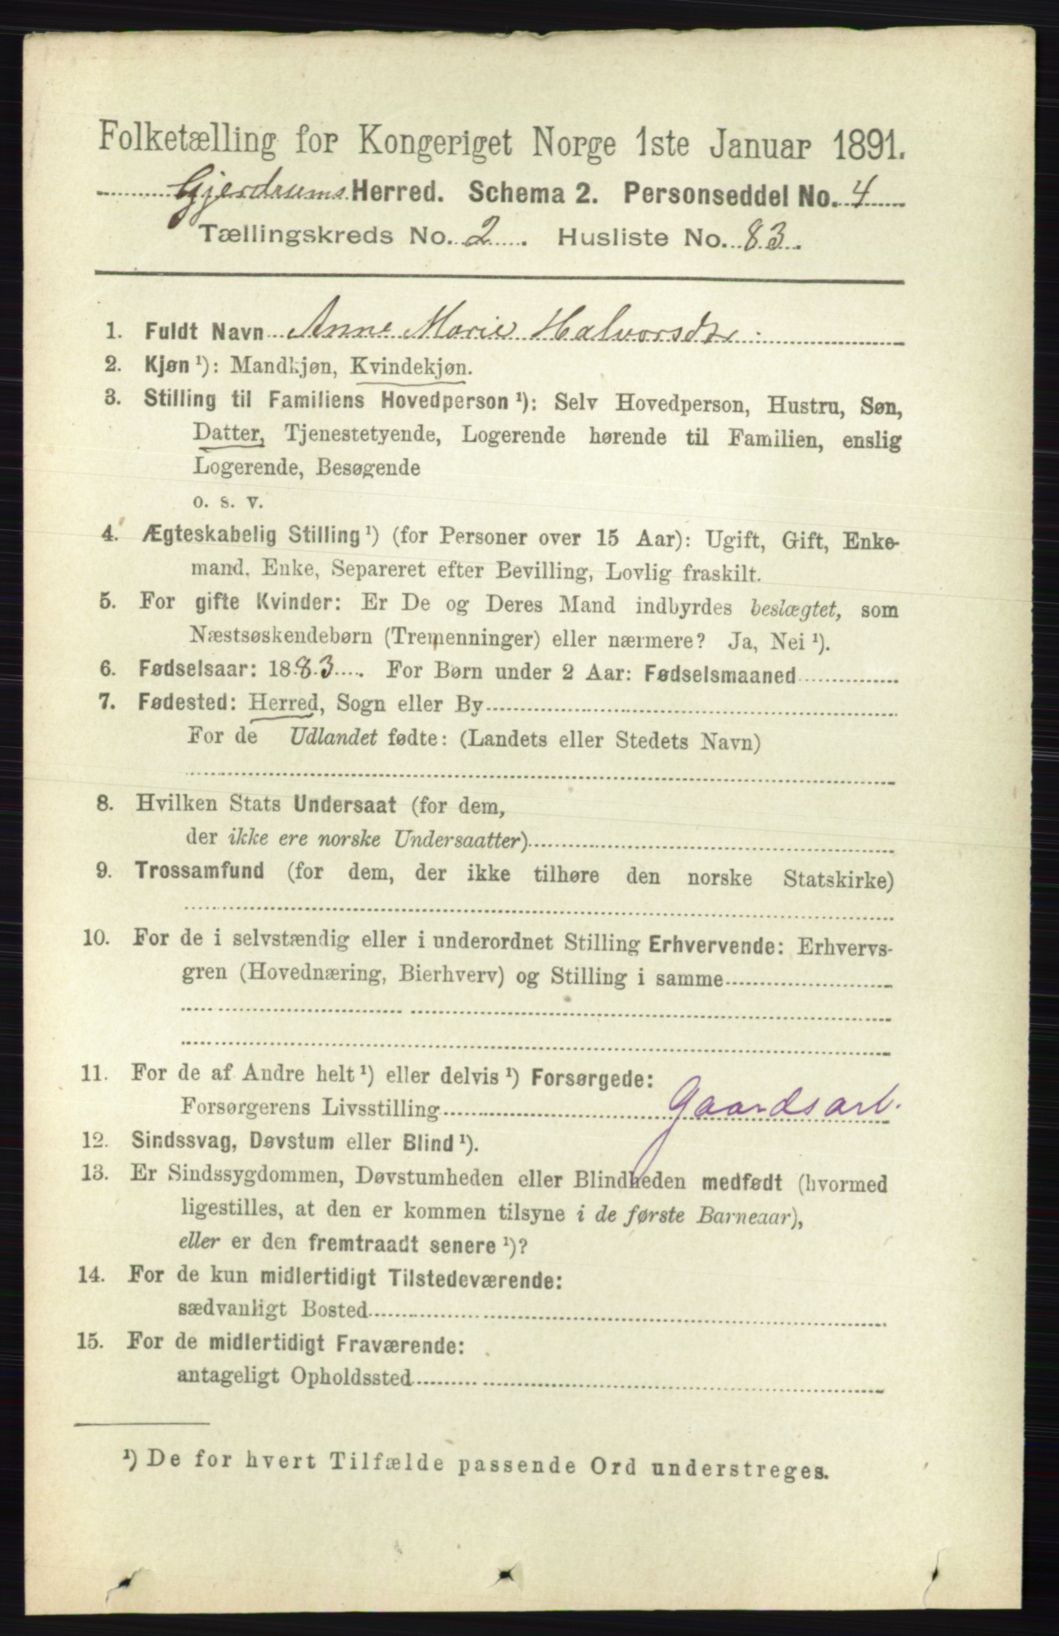 Folketælling for Kongeriget Norge 1ste Januar 1891.
Gjerdrums Herred. Schema 2. Personseddel No. 4
Tællingskreds No. 2. Husliste No. 83.
1. Fuldt Navn Anne Marie Halvorsdtr.
2. Kjøn ¹): Mandkjøn, Kvindekjøn.
3. Stilling til Familiens Hovedperson ¹): Selv Hovedperson, Hustru, Søn,
Datter, Tjenestetyende, Logerende hørende til Familien, enslig
Logerende, Besøgende
o. s. v.
4. Ægteskabelig Stilling ¹) (for Personer over 15 Aar): Ugift, Gift, Enke-
mand, Enke, Separeret efter Bevilling, Lovlig fraskilt.
5. For gifte Kvinder: Er De og Deres Mand indbyrdes beslægtet, som
Næstsøskendebørn (Tremenninger) eller nærmere? Ja, Nei ¹).
6. Fødselsaar: 1883. For Børn under 2 Aar: Fødselsmaaned
7. Fødested: Herred, Sogn eller By
For de Udlandet fødte: (Landets eller Stedets Navn)
8. Hvilken Stats Undersaat (for dem,
der ikke ere norske Undersaatter)
9. Trossamfund (for dem, der ikke tilhøre den norske Statskirke)
10. For de i selvstændig eller i underordnet Stilling Erhvervende: Erhvervs-
gren (Hovednæring, Bierhverv) og Stilling i samme
11. For de af Andre helt ¹) eller delvis ¹) Forsørgede:
Forsørgerens Livsstilling Gaardsarb.
12. Sindssvag, Døvstum eller Blind ¹).
13. Er Sindssygdommen, Døvstumheden eller Blindheden medfødt (hvormed
ligestilles, at den er kommen tilsyne i de første Barneaar),
eller er den fremtraadt senere ¹)?
14. For de kun midlertidigt Tilstedeværende:
sædvanligt Bosted
15. For de midlertidigt Fraværende:
antageligt Opholdssted
¹) De for hvert Tilfælde passende Ord understreges.